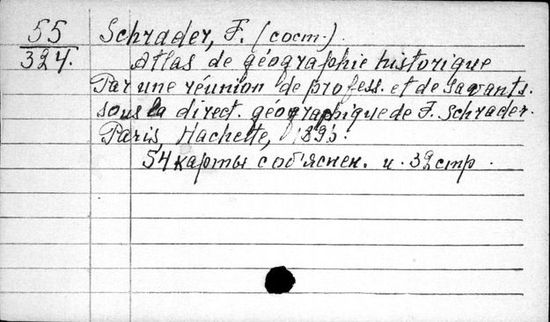 55 Schrader, F. (сост.)
324. Atlas de géographie historique
Par une réunion de profess. et de savants.
sous la direct. géographique de F. Schrader.
Paris, Hachette,
54 карты с об'яснен. и 32 стр.